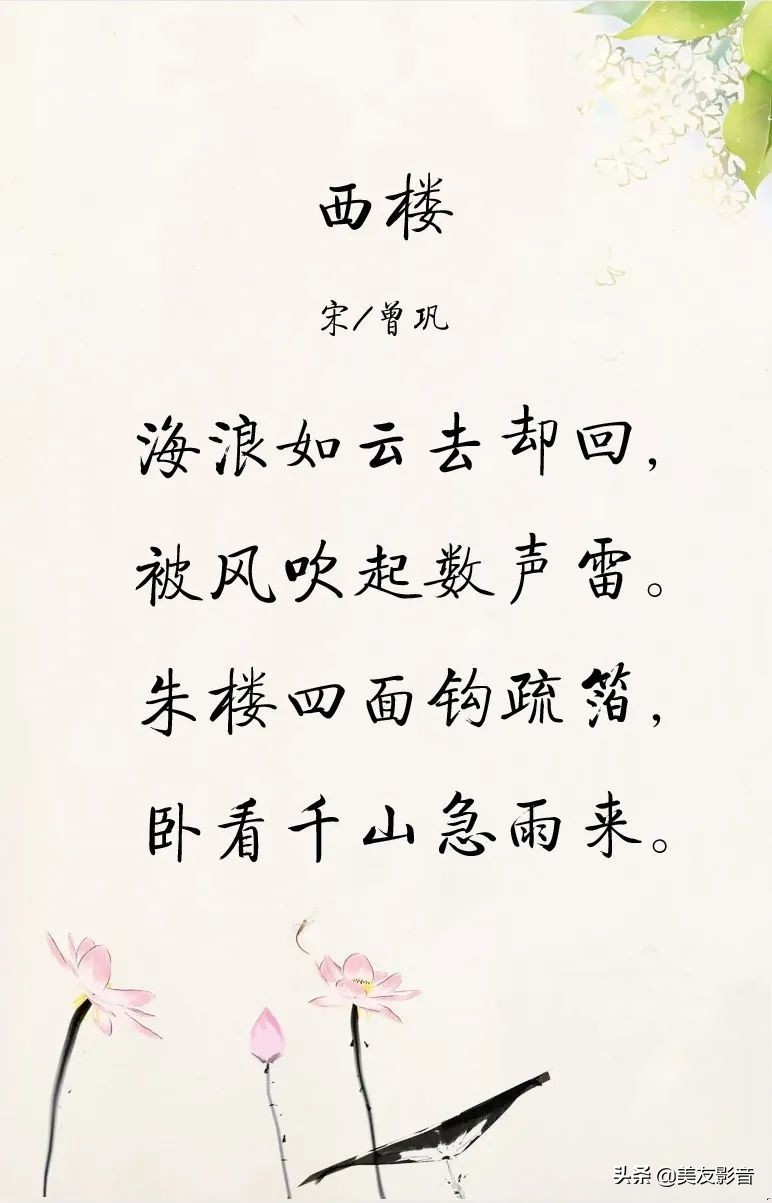 西楼
宋/曾巩
海浪如云去却回，
被风吹起数声雷。
朱楼四面钩疏箔，
卧看千山急雨来。
头条 @美友影音